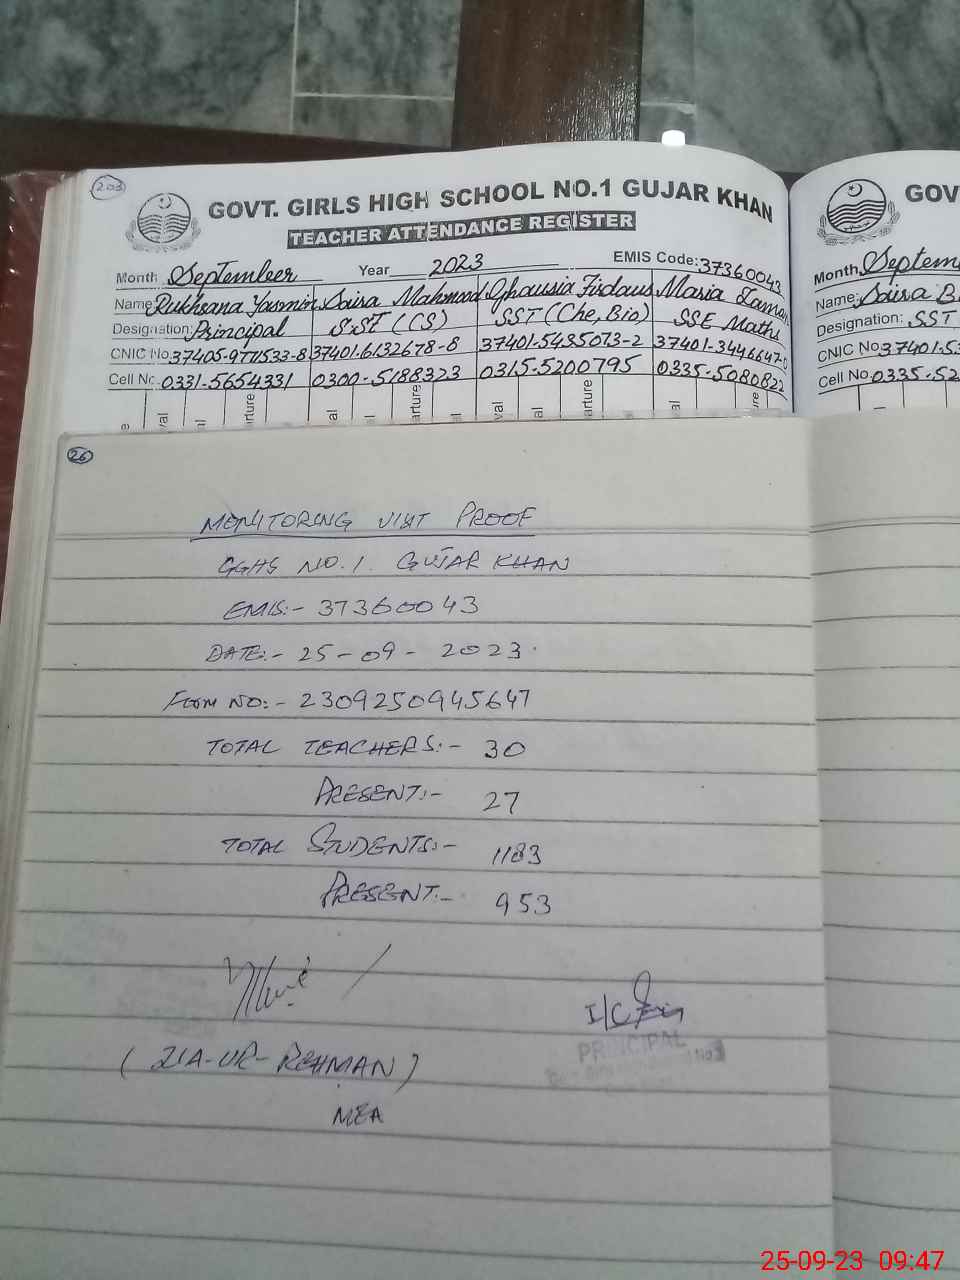 203
GOVT. GIRLS HIGH SCHOOL NO.1 GUJAR KHAN
TEACHER ATTENDANCE REGISTER
Month September Year 2023 EMIS Code: 37360043
Name: Rukhsana Yasmin Saira Mahmood Ghausia Firdaus Maria Zaman
Designation: Principal S.ST (CS) SST (Che, Bio) SSE Maths
CNIC No. 37405-9771533-8 37401-6132678-8 37401-5435073-2 37401-3446647-0
Cell No. 0331-5654331 0300-5188323 0315-5200795 0335-5080822
e val al arture al al arture al al arture al ure
GOV
Month Septem
Name: Saira B
Designation: SST
CNIC No 37401-53
Cell No. 0335-52
26
MONITORING VISIT PROOF
GGHS NO. 1. GUJAR KHAN
EMIS:- 37360043
DATE:- 25-09-2023.
FORM NO:- 2309250945647
TOTAL TEACHERS:- 30
PRESENT:- 27
TOTAL STUDENTS:- 1183
PRESENT:- 953
I/C
PRINCIPAL
No.1
(ZIA-UR-REHMAN)
MEA
25-09-23 09:47